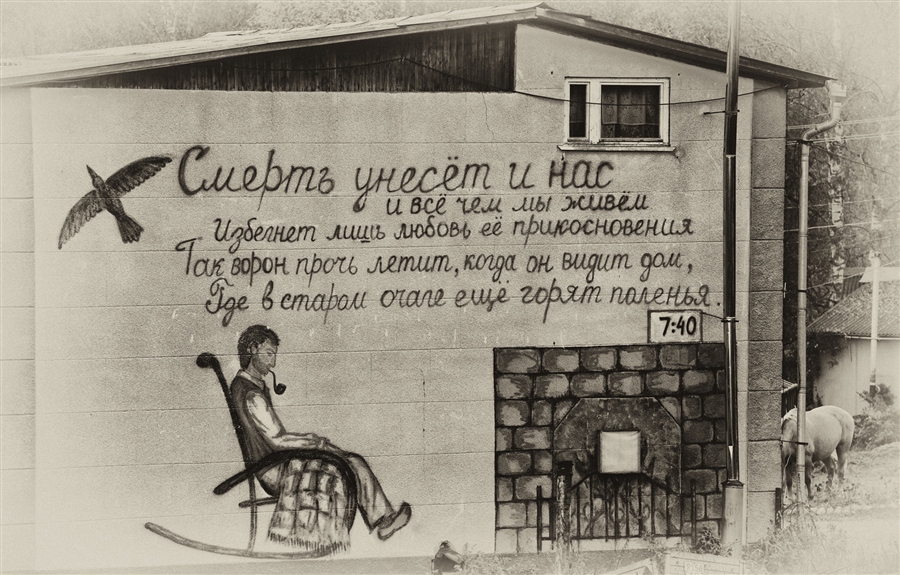 Смерть унесёт и нас
и всё чем мы живём
Избегнет лишь любовь её прикосновения
Так ворон прочь летит, когда он видит дом,
Где в старом очаге ещё горят поленья.
7:40